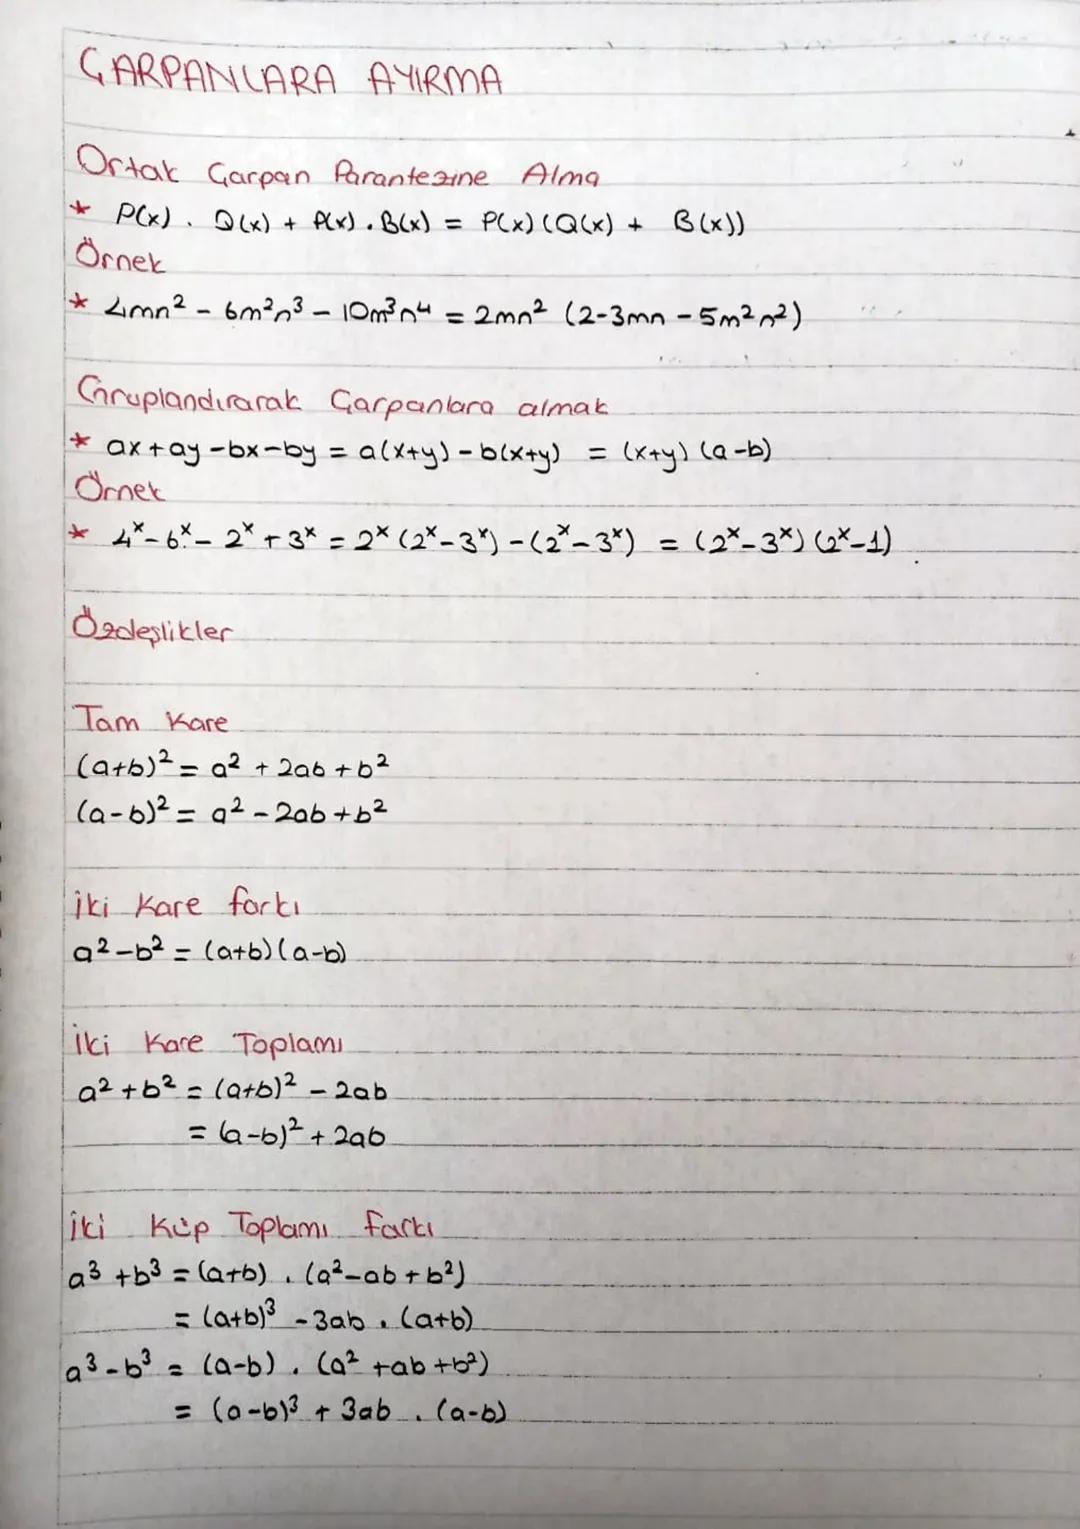 ÇARPANLARA AYIRMA
Ortak Çarpan Parantezine Alma
* P(x) . Q(x) + P(x) . B(x) = P(x) (Q(x) + B(x))
Örnek
* 4mn² - 6m²n³ - 10m³n⁴ = 2mn² (2-3mn - 5m²n²)
Gruplandırarak Çarpanlara almak
* ax+ay-bx-by = a(x+y) - b(x+y) = (x+y) (a-b)
Örnek
* 4ˣ - 6ˣ - 2ˣ + 3ˣ = 2ˣ (2ˣ-3ˣ) - (2ˣ-3ˣ) = (2ˣ-3ˣ) (2ˣ-1)
Özdeşlikler
Tam Kare
(a+b)² = a² + 2ab + b²
(a-b)² = a² - 2ab + b²
İki Kare farkı
a² - b² = (a+b) (a-b)
İki Kare Toplamı
a² + b² = (a+b)² - 2ab
= (a-b)² + 2ab
İki Küp Toplamı farkı
a³ + b³ = (a+b) . (a²-ab+b²)
= (a+b)³ - 3ab . (a+b)
a³ - b³ = (a-b) . (a² +ab+b²)
= (a-b)³ + 3ab . (a-b)